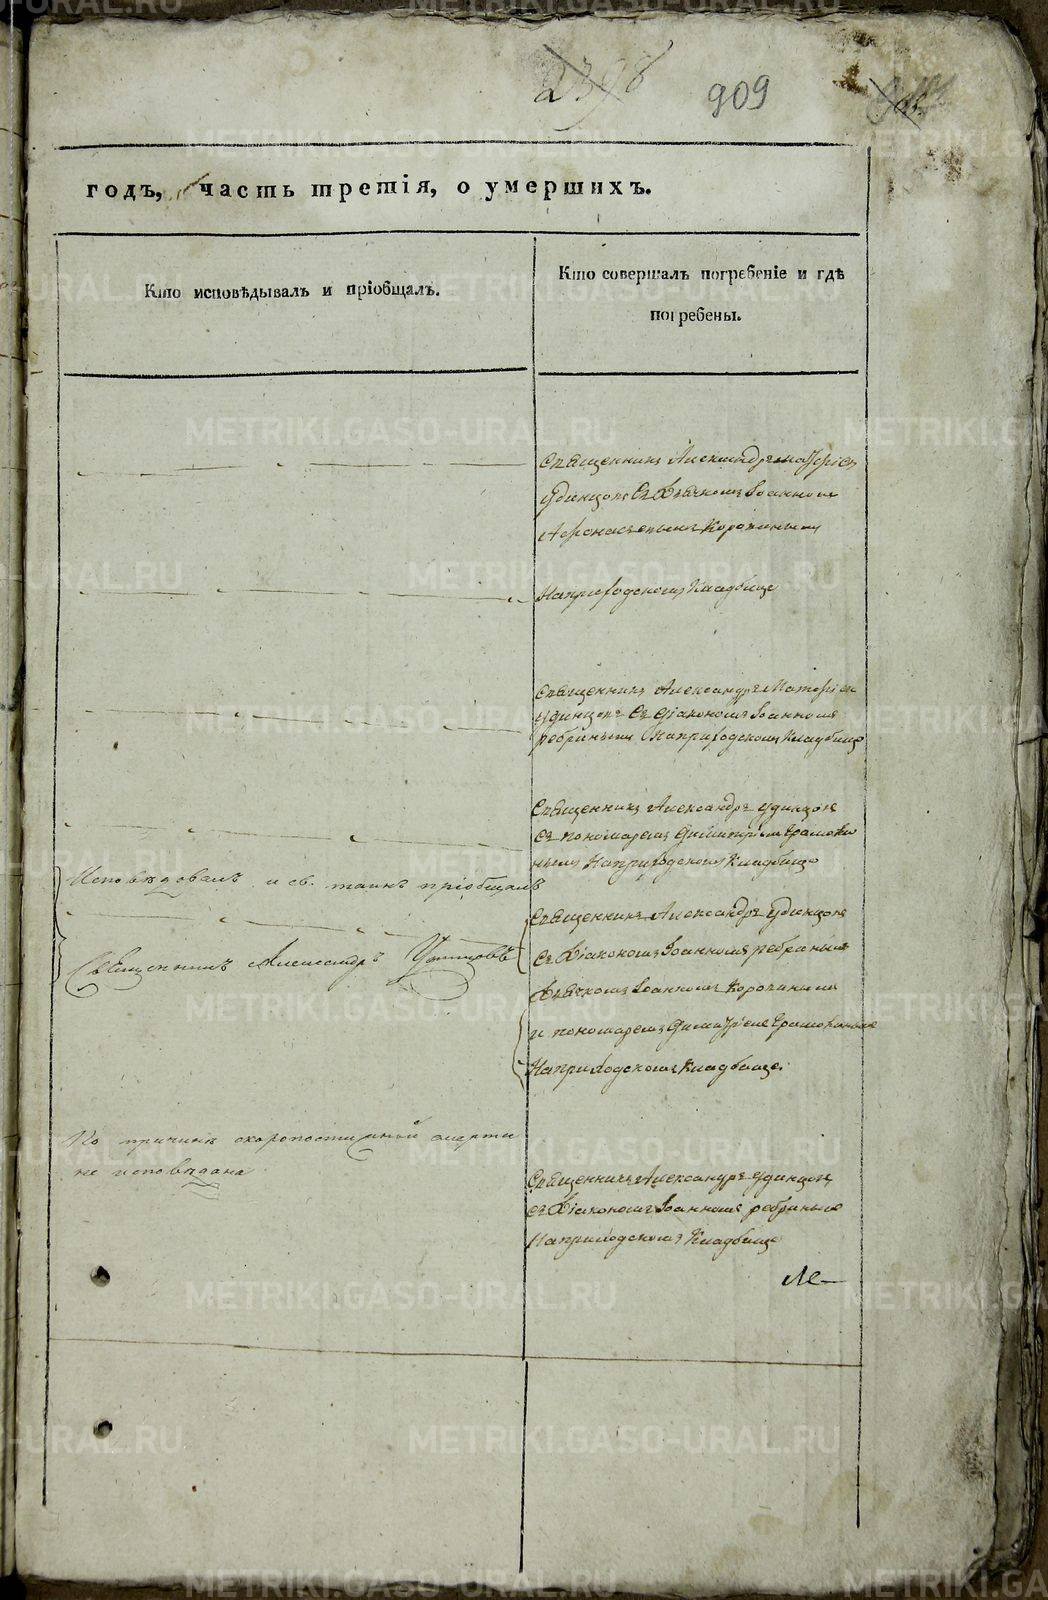 2398
909
годъ, часть третія, о умершихъ.
Кто исповѣдывалъ и пріобщалъ.
Кто совершалъ погребеніе и гдѣ
погребены.
Священникъ Александръ Матфіев
Удинцовъ съ Дьячкомъ Іоанномъ
Афонасьевымъ Коровинымъ
На приходскомъ кладбище
Священникъ Александръ Матфіев
Удинцовъ съ діакономъ Іоанномъ
ребриным на приходскомъ кладбище
Священникъ Александръ Удинцовъ
съ пономаремъ Димитріем
ным на приходскомъ кладбище
Исповѣдовалъ и св. таинъ пріобщалъ
Священникъ Александръ Удинцовъ
Священникъ Александръ Удинцовъ
съ Діакономъ Іоанномъ ребриным
Дьячкомъ Іоанномъ Коровиным
и пономаремъ Димитріем
На приходскомъ кладбище.
По причинѣ скоропостижной смерти
не исповѣдана
Священникъ Александръ Удинцовъ
съ Діакономъ Іоанномъ ребриным
На приходскомъ кладбище
METRIKI.GASO-URAL.RU